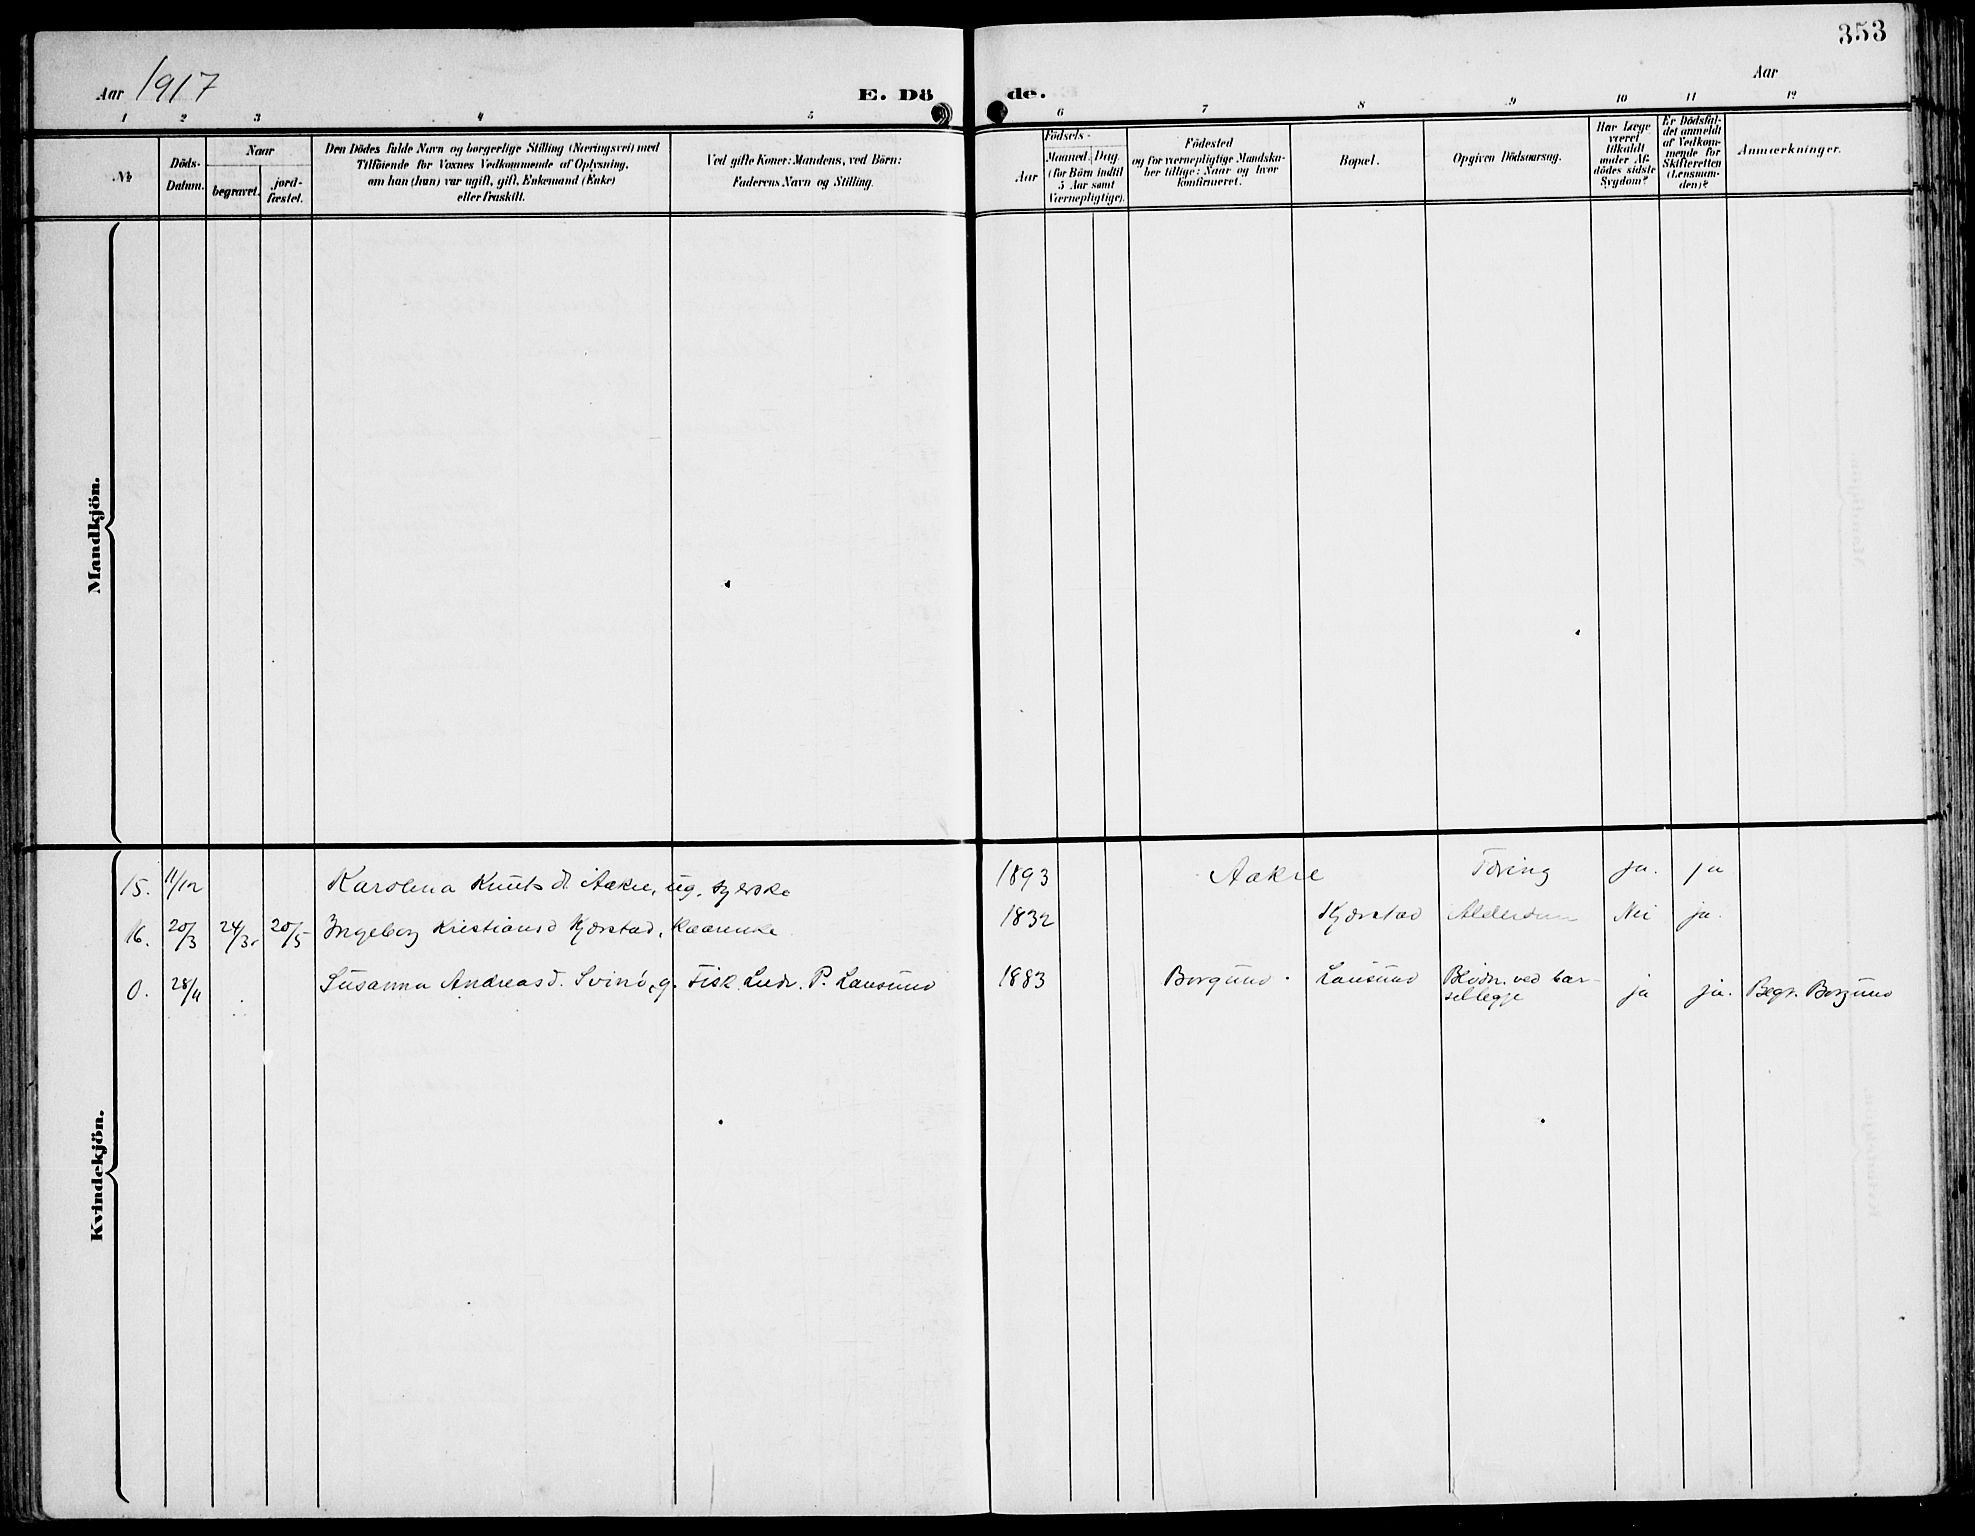 353
Aar 1917
E. Dö
de.
Aar
1 2 3 4 5 6 7 8 9 10 11 12
№
Döds-Datum.
Naar
begravet.
jord-fæstet.
Den Dödes fulde Navn og borgerlige Stilling (Næringsvei) med
Tilföiende for Voxnes Vedkommende af Oplysning,
om han (hun) var ugift, gift, Enkemand (Enke)
eller fraskilt.
Ved gifte Koner: Mandens, ved Börn:
Faderens Navn og Stilling.
Födsels-
Aar
Maaned.
Dag
(for Börn indtil
5 Aar samt
Værnepligtige).
Födested
og for værnepligtige Mandska-
ber tillige: Naar og hvor
konfirmeret.
Bopæl.
Opgiven Dödsaarsag.
Har Læge
været
tilkaldt
under Af-
dödes sidste
Sygdom?
Er Dödsfal-
det anmeldt
af Vedkom-
mende for
Skifteretten
(Lensman-
den)?
Anmærkninger.
Mandkjön.
Kvindekjön.
15. 11/12 Karolena Knuts dr Aakre, ug. syerske 1893 Aakre Tæring ja. ja
16. 20/3 24/3 20/5 Ingeborg Kristiansd Kjærstad, kaarenke 1832 Kjærstad Alderdom Nei ja.
0. 28/11 Susanna Andreasd. Svinö, g. Fisk. Ludv. P. Lausund 1883 Borgund. Lausund Blödn. ved bar-
selleggje ja ja. Begr. Borgund